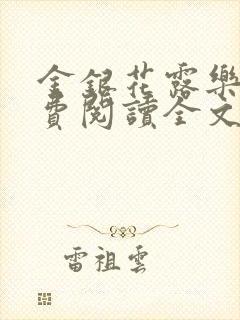 金銀花露樂
費閱讀全文
雷祖雲